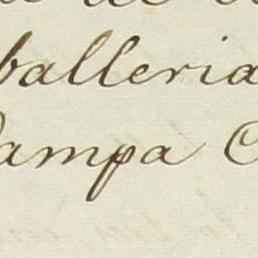 balleria
ampa C